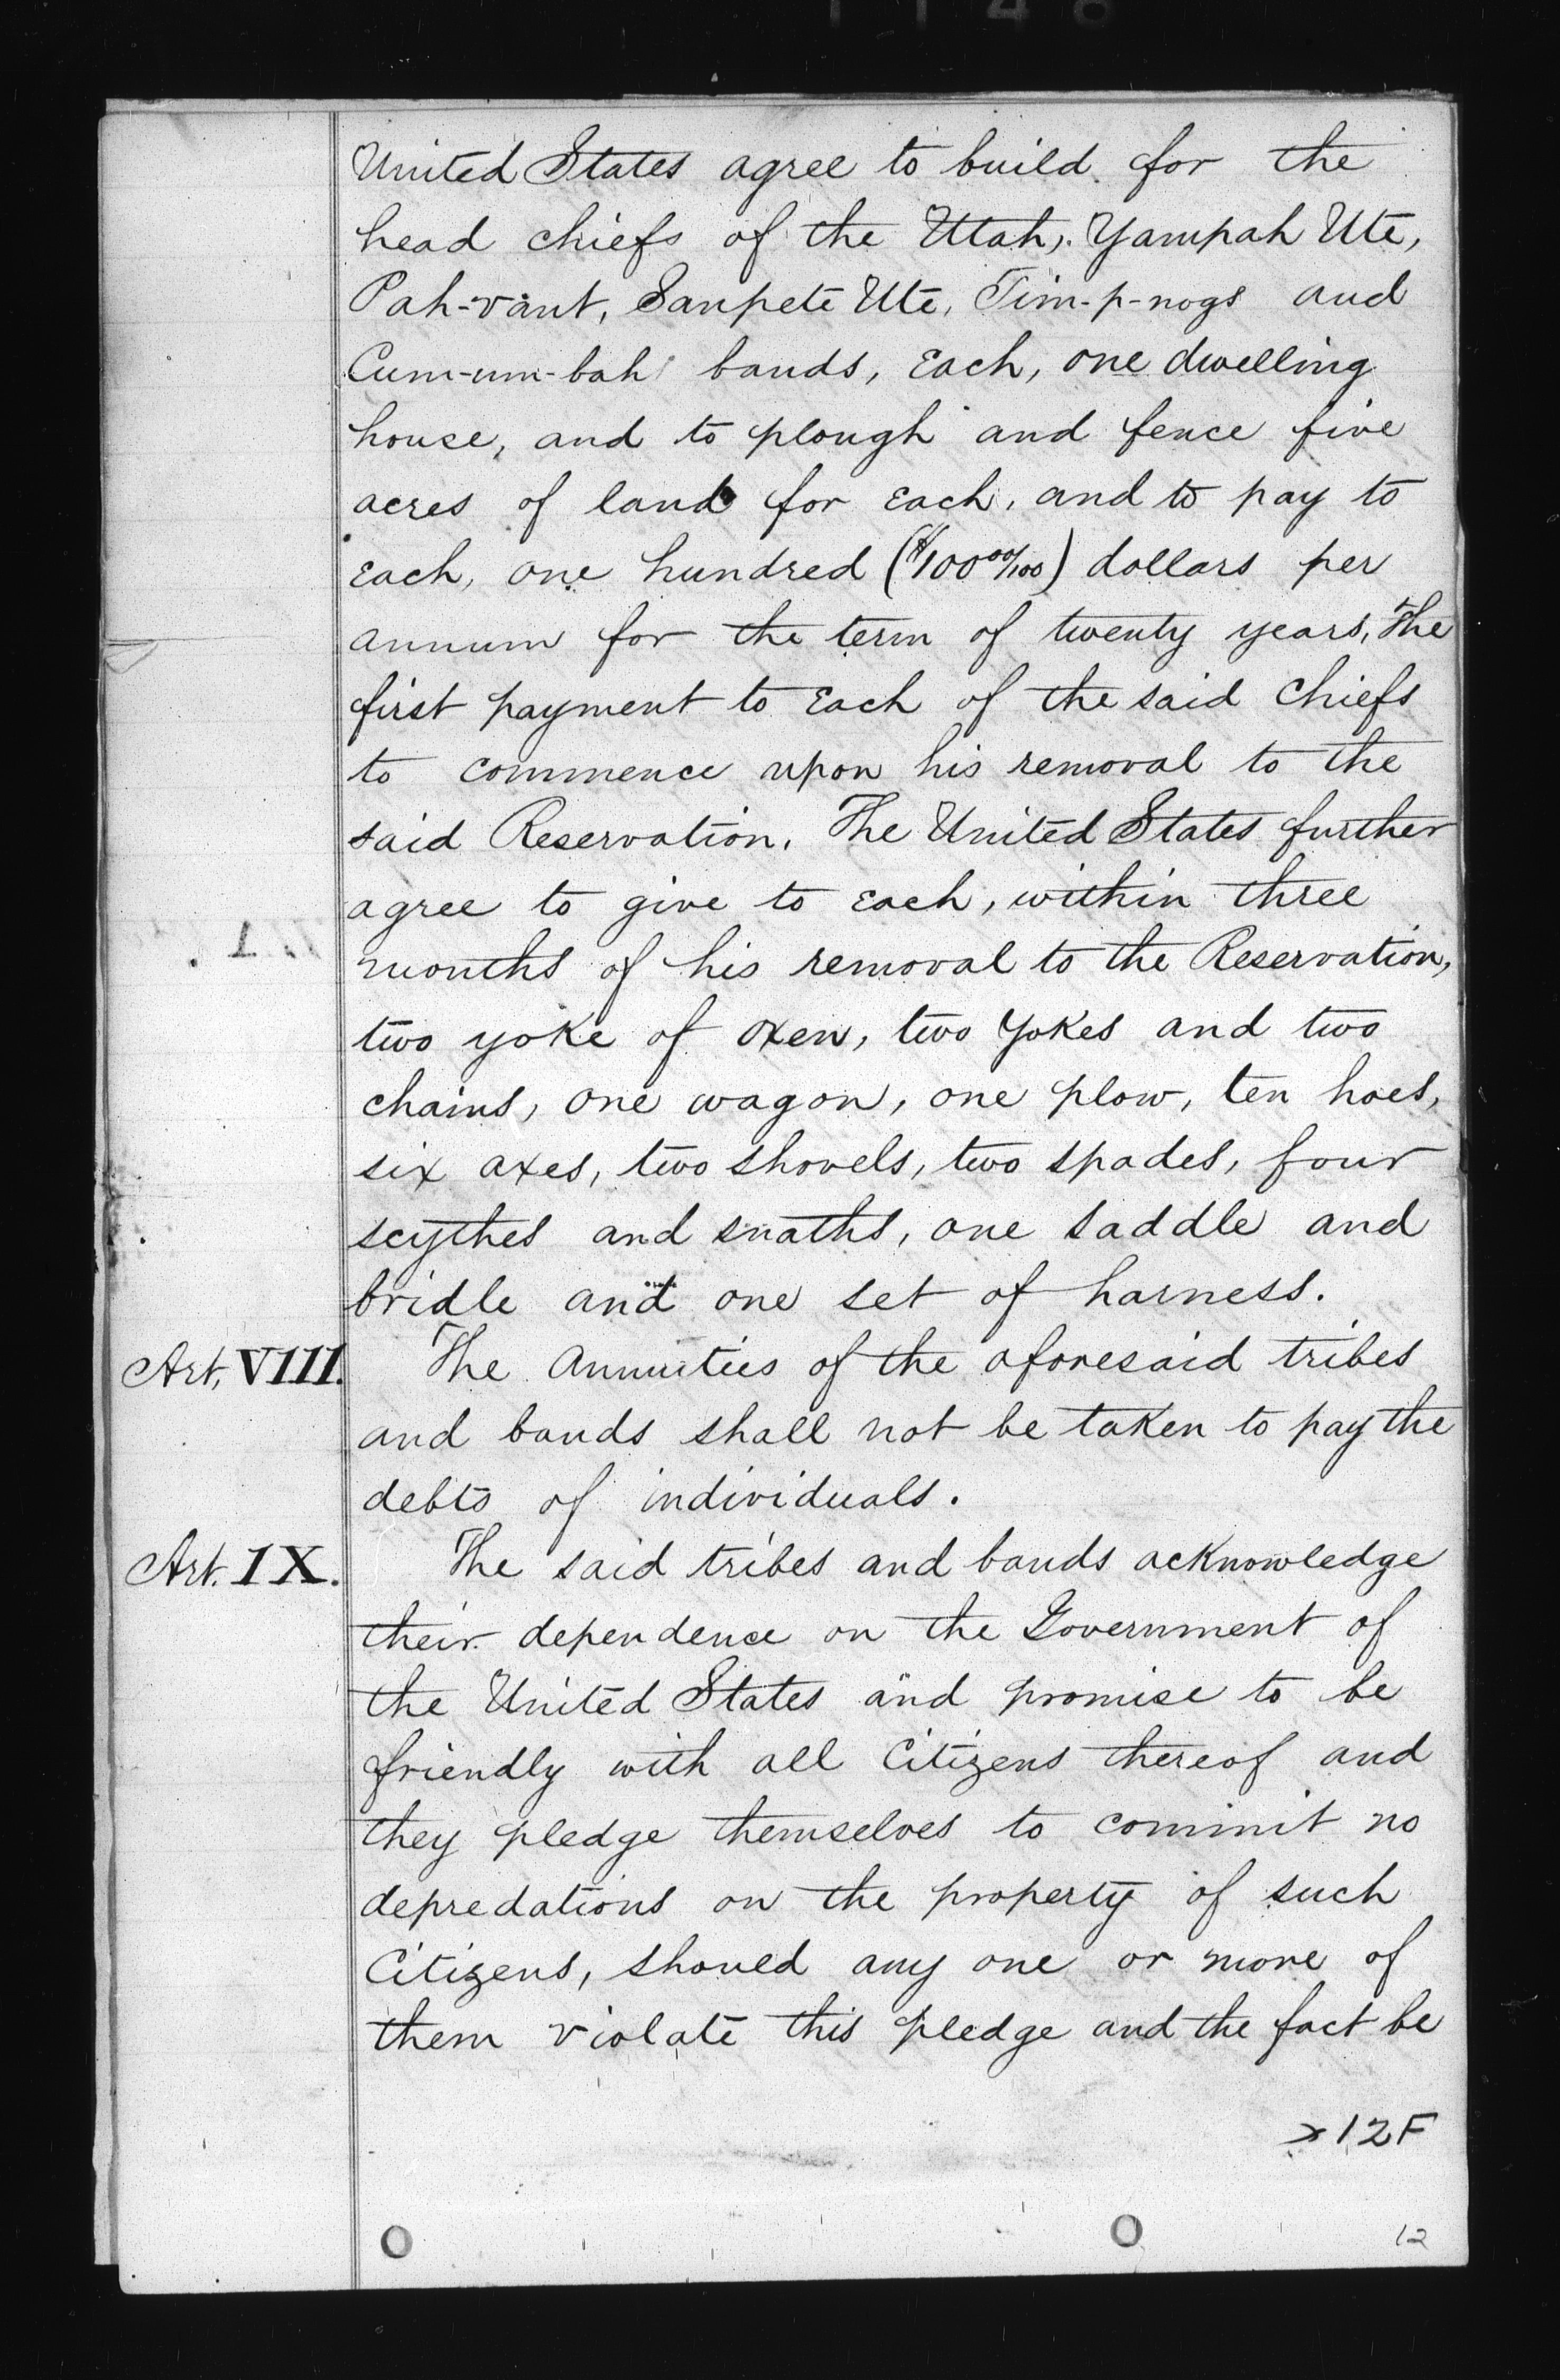 United States agree to build for the
head chiefs of the Utah, Yampah Ute,
Pah-vant, Sanpete Ute, Tim-p-nogs and
Cum-um-bah bands, Each, one dwelling
house, and to plough and fence five
acres of land for Each, and to pay to
Each, one hundred ($100 00/100) dollars per
annum for the term of twenty years, The
first payment to Each of the said Chiefs
to commence upon his removal to the
said Reservation. The United States further
agree to give to Each, within three
months of his removal to the Reservation,
two yoke of oxen, two Yokes and two
chains, one wagon, one plow, ten hoes,
six axes, two shovels, two spades, four
scythes and snaths, one saddle and
bridle and one set of harness.
Art. VIII. The Annuities of the aforesaid tribes
and bands shall not be taken to pay the
debts of individuals.
Art. IX. The said tribes and bands acknowledge
their dependence on the Government of
the United States and promise to be
friendly with all Citizens thereof and
they pledge themselves to commit no
depredations on the property of such
Citizens, should any one or more of
them violate this pledge and the fact be
>12F
12